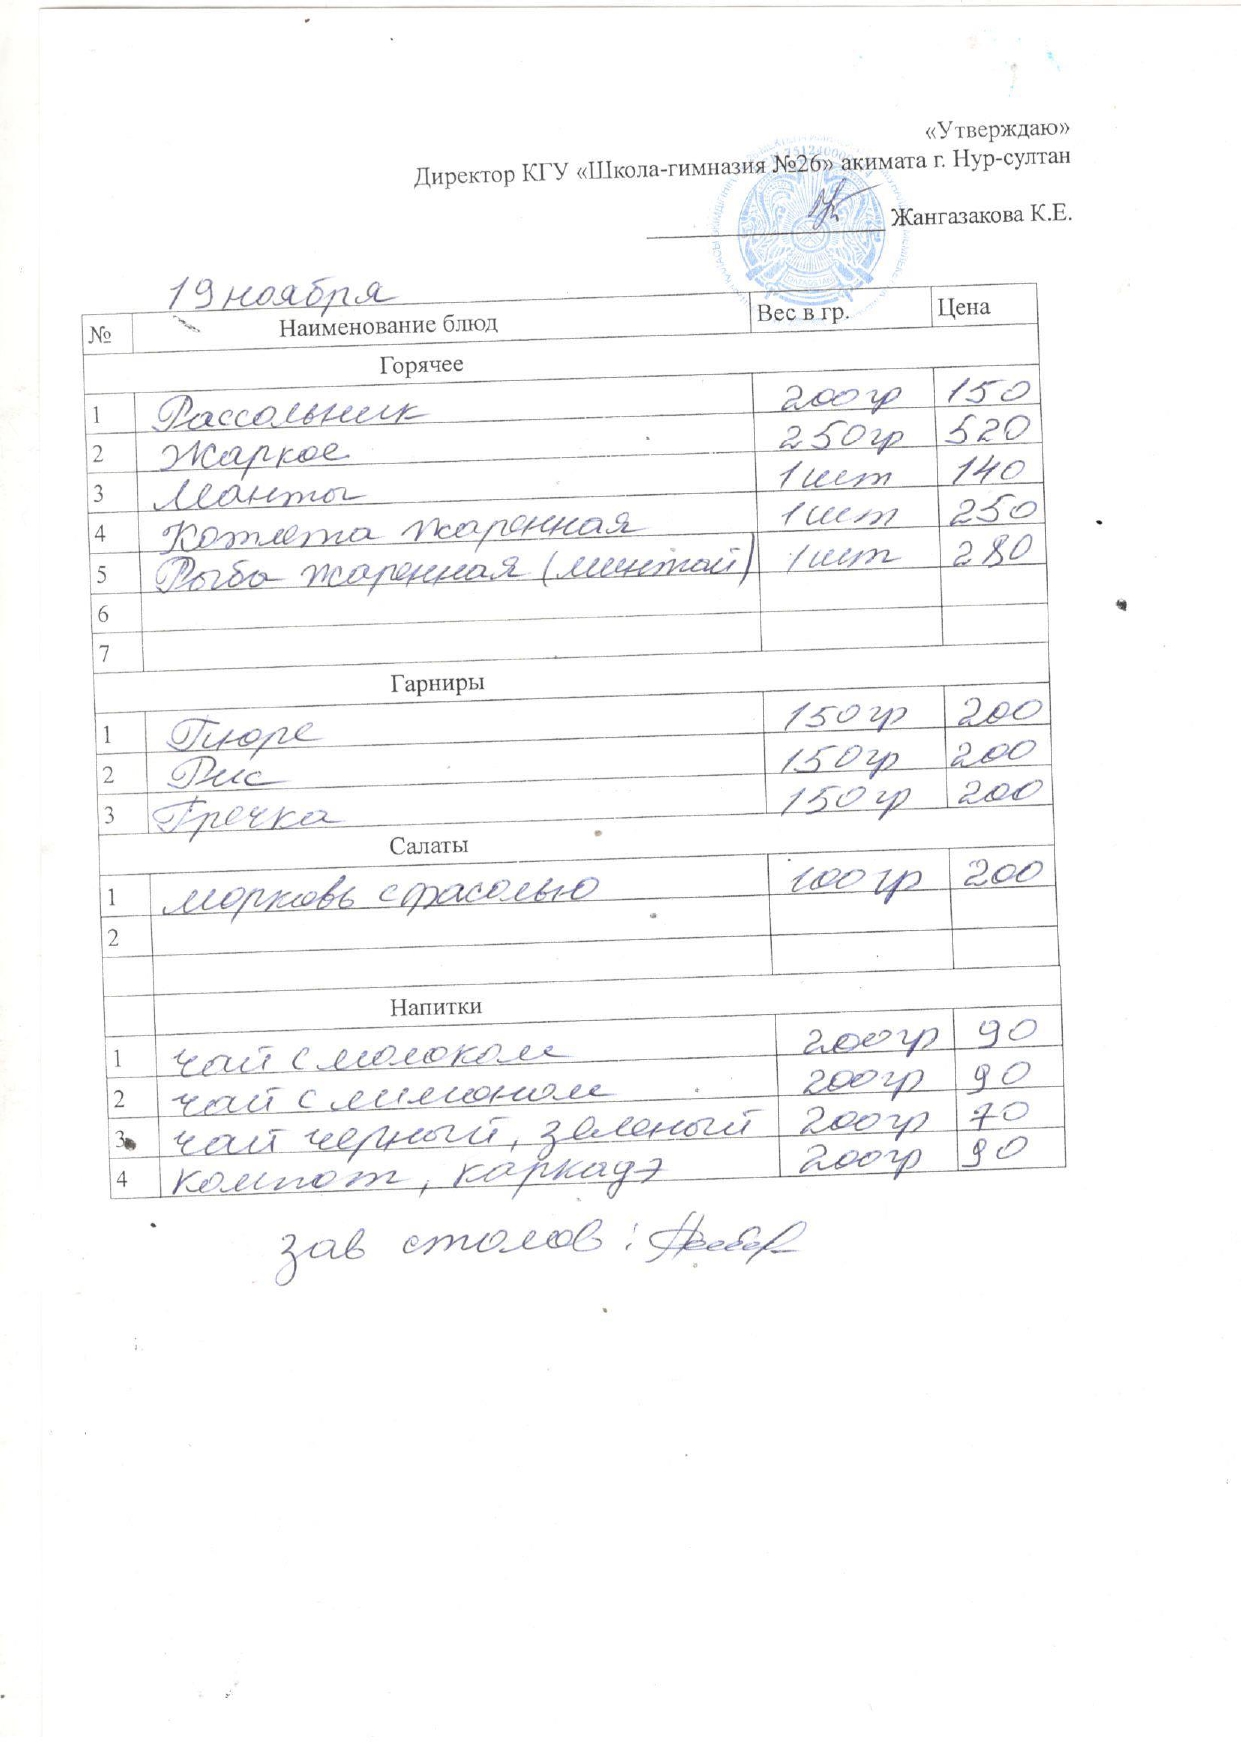 «Утверждаю»
Директор КГУ «Школа-гимназия №26» акимата г. Нур-султан
Жангазакова К.Е.
19 ноября
№ Наименование блюд Вес в гр. Цена
Горячее
1 Рассольник 200гр 150
2 Жаркое 250гр 520
3 Манты 1шт 140
4 Котлета жаренная 1шт 250
5 Рыба жаренная (минтай) 1шт 280
6
7
Гарниры
1 Пюре 150гр 200
2 Рис 150гр 200
3 Гречка 150гр 200
Салаты
1 морковь с фасолью 100гр 200
2
Напитки
1 чай с молоком 200гр 90
2 чай с лимоном 200гр 90
3 чай черный, зеленый 200гр 70
4 компот, каркадэ 200гр 90
зав столов: